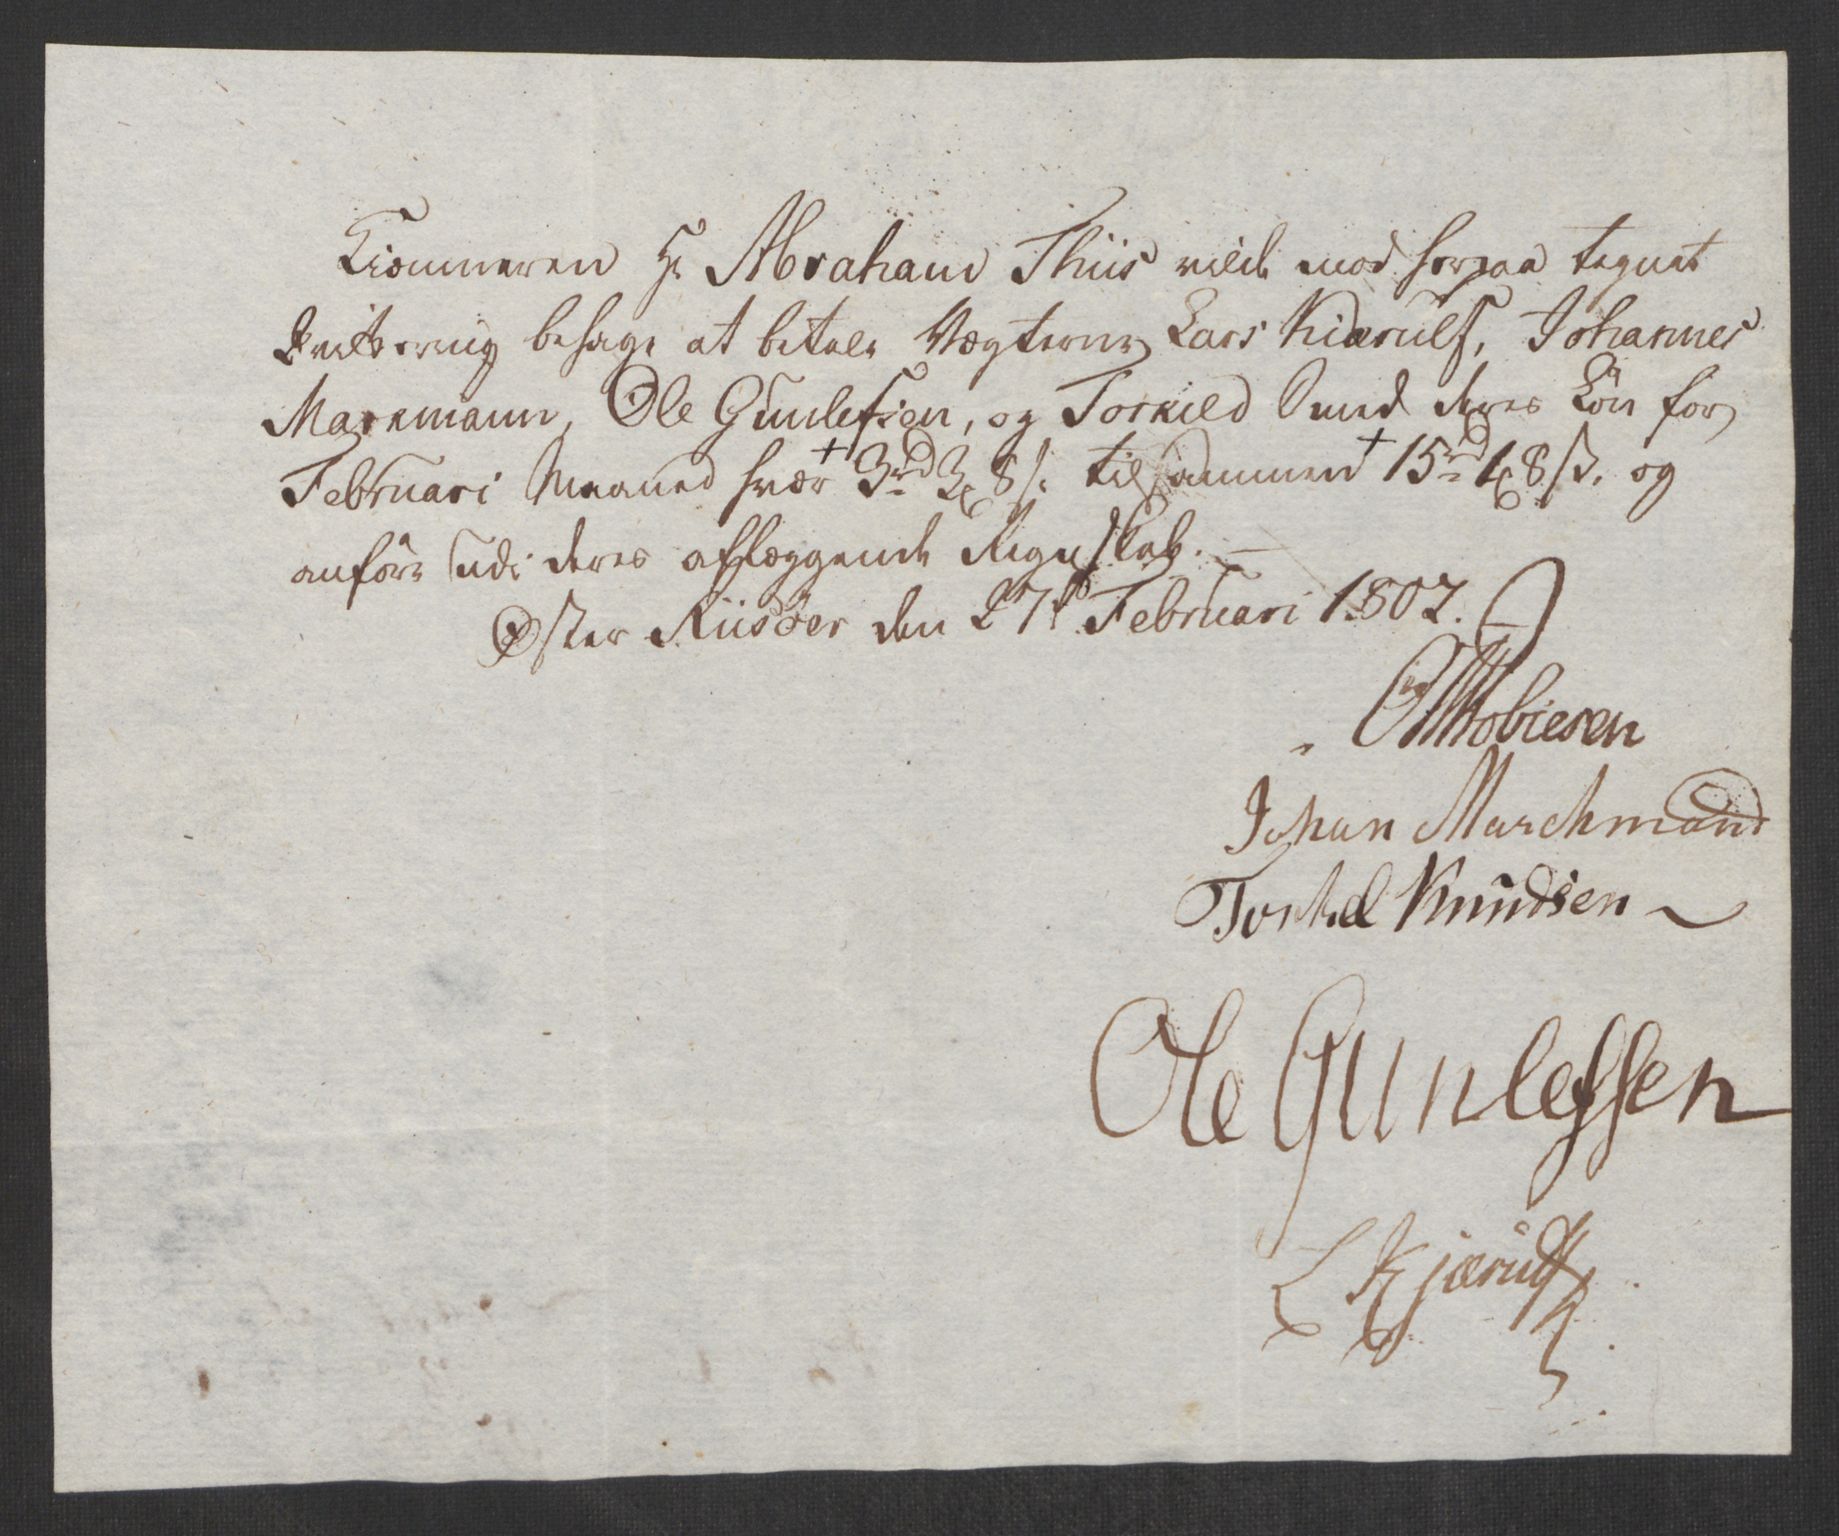 Kiæmneren Hr Abraham Thiis vilde mod herpaa tegnet
Quittering behage at betale Vægterne Lars Kiærulf, Johannes
Markmann, Ole Gunlefsen, og Torkild Knud deres Lön for
Februari Maaned hvær 3rd 3 8 s. tilsammen 15rd 1 8 s. og
anföre udi deres aflæggende Regnskab. —
Øster Riisöer den 27de Februari 1802. —
Tobiesen
Johan Marchmand
Torkel Knudsen
Ole Gunlefsen
L Kjærulf